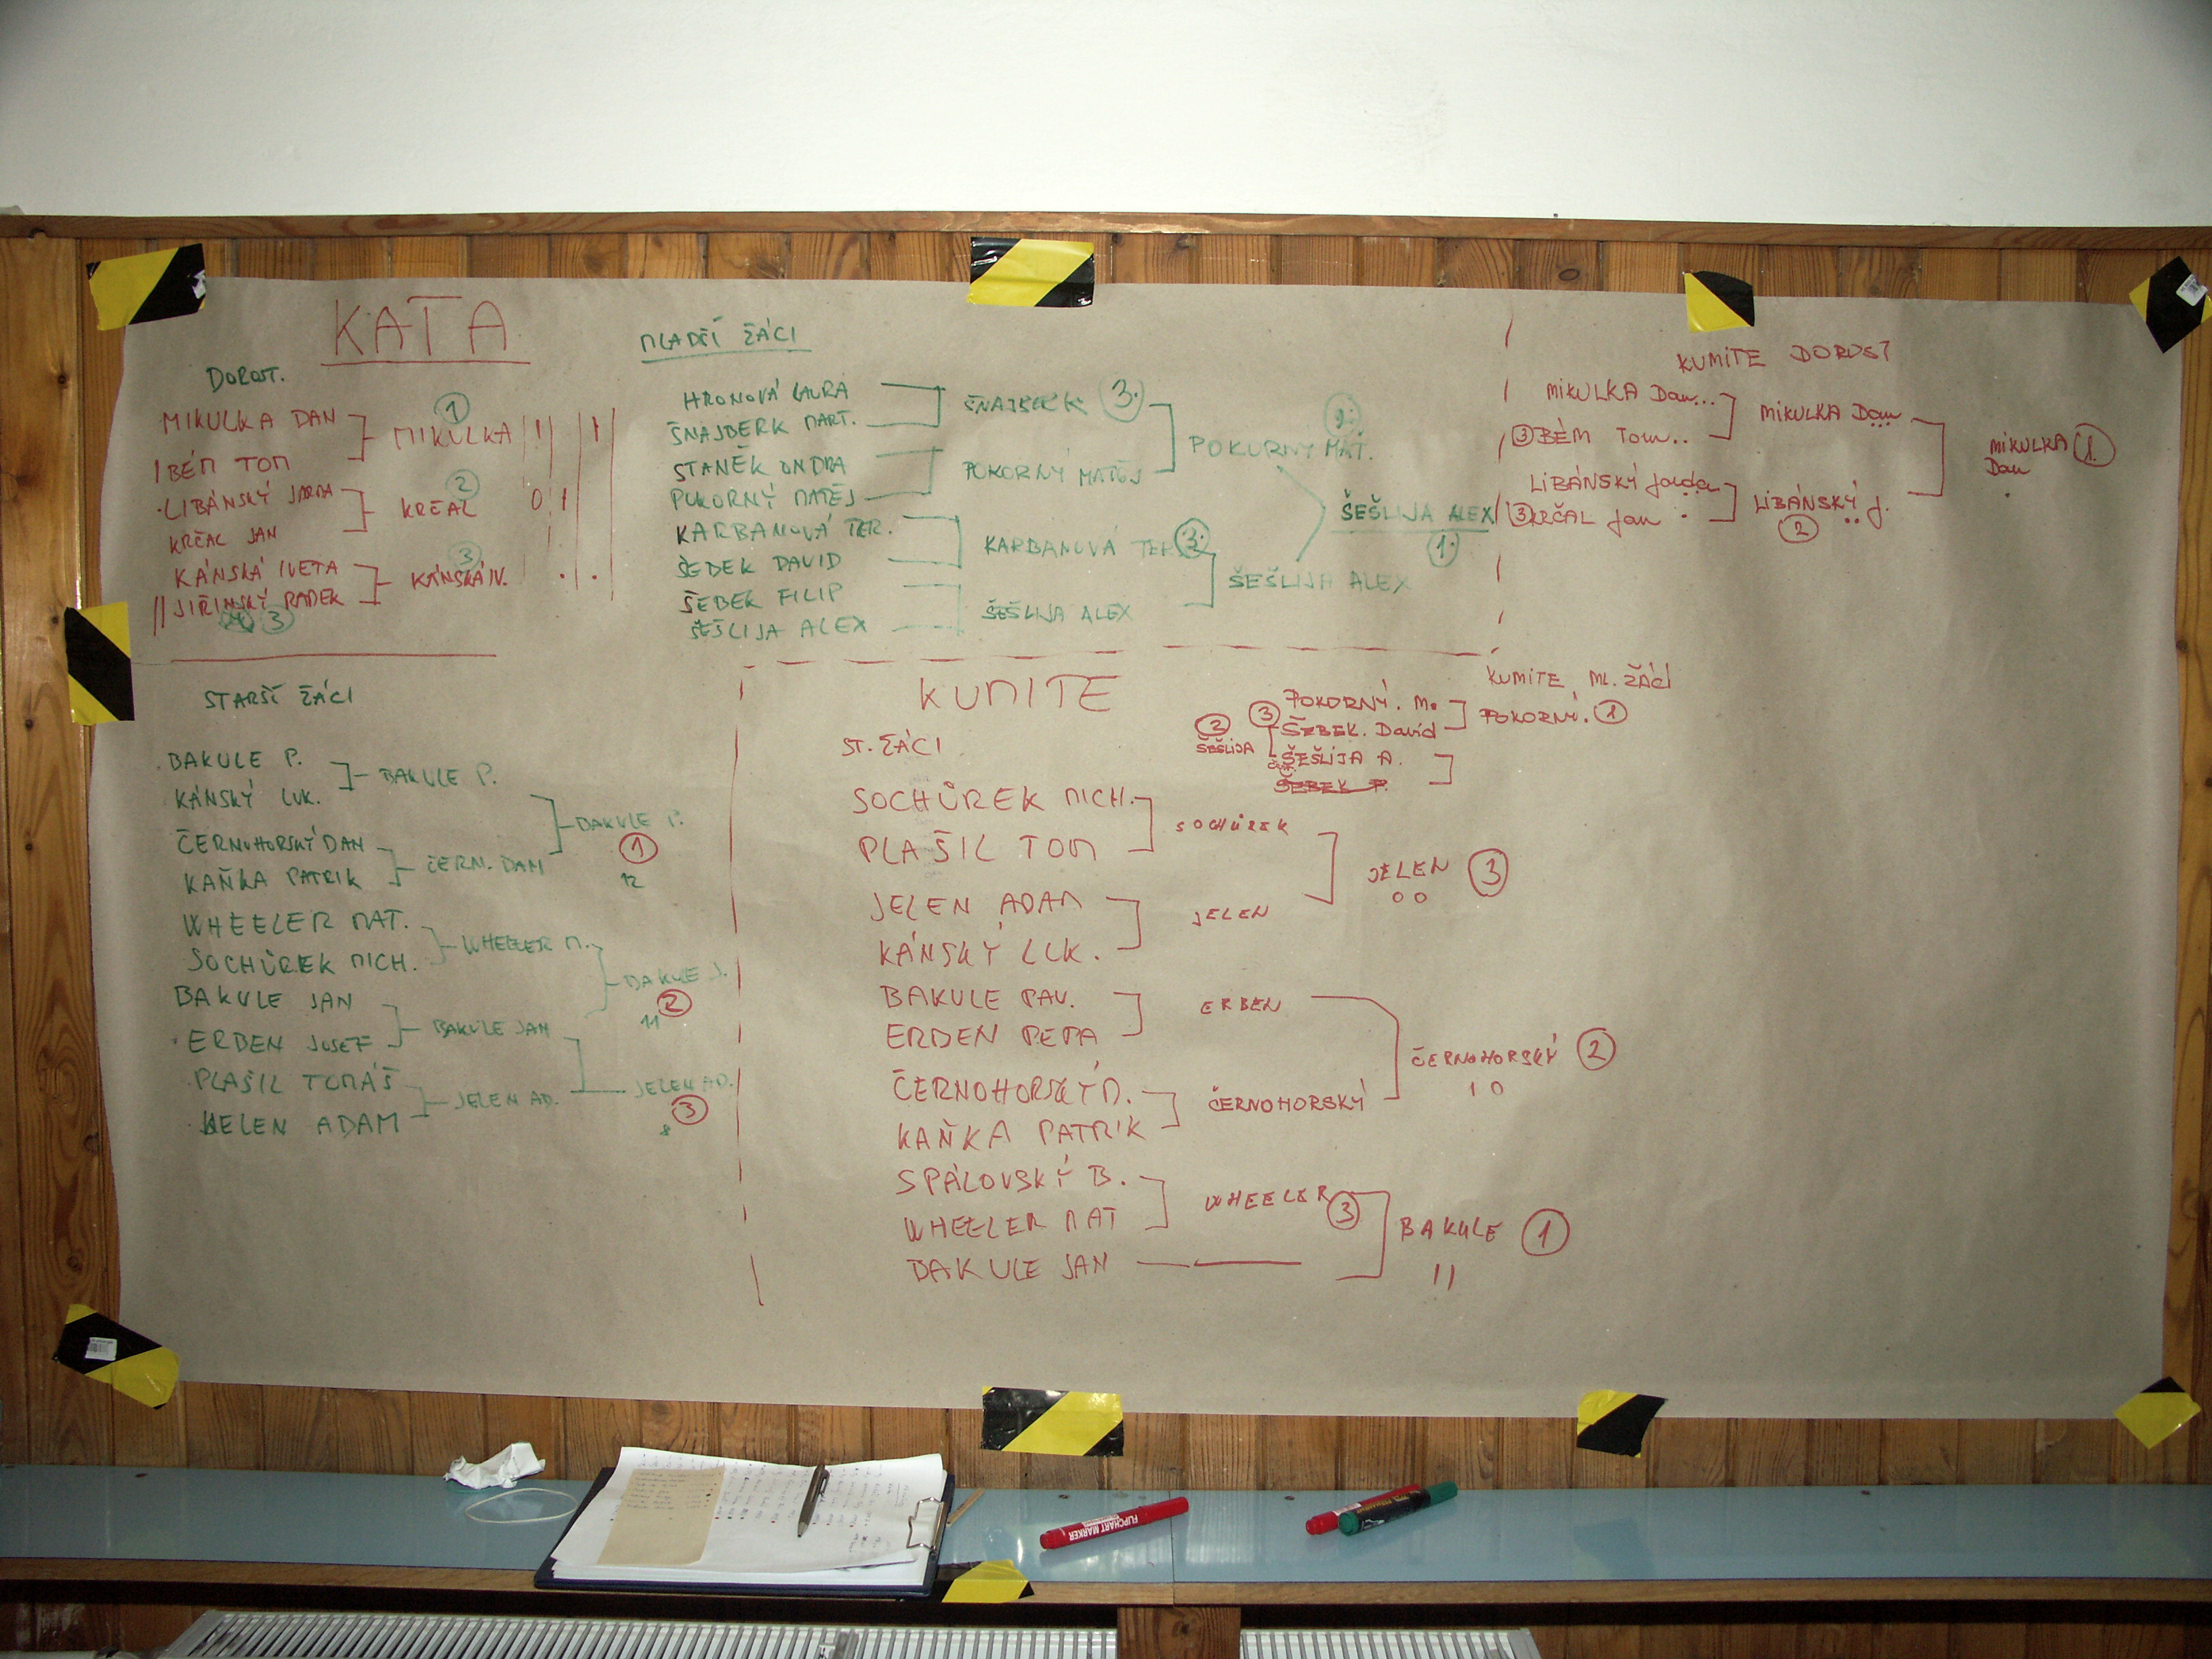 KATA
DOROST.
MIKULKA DAN
BÉM TOM
MIKULKA
1
LIBÁNSKÝ JARDA
KRČAL JAN
KRČAL
2
0 1
KÁNSKÁ IVETA
JIŘINSKÝ RADEK
3
KÁNSKÁ IV.
3
MLADŠÍ ŽÁCI
HRONOVÁ LAURA
ŠNAJBERK MART.
STANĚK ONDRA
POKORNÝ MATĚJ
KARBANOVÁ TER.
ŠEBEK DAVID
ŠEBEK FILIP
ŠEŠLIJA ALEX
ŠNAJBERK 3.
POKORNÝ MATĚJ
KARBANOVÁ TER. 3.
ŠEŠLIJA ALEX
2.
POKORNÝ MAT.
ŠEŠLIJA ALEX
ŠEŠLIJA ALEX
1.
KUMITE DOROST
MIKULKA Dan...
3 BÉM Tom..
LIBÁNSKÝ Jarda
3 KRČAL Jan .
MIKULKA Dan
LIBÁNSKÝ J.
2
MIKULKA 1.
Dan
STARŠÍ ŽÁCI
BAKULE P.
KÁNSKÝ LUK.
ČERNOHORSKÝ DAN
KAŇKA PATRIK
WHEELER MAT.
SOCHŮREK MICH.
BAKULE JAN
ERBEN JOSEF
PLAŠIL TOMÁŠ
JELEN ADAM
BAKULE P.
ČERN. DAN
WHEELER M.
BAKULE JAN
JELEN AD.
BAKULE P.
1
12
BAKULE J.
2
11
JELEN AD.
3
8
KUMITE
ST. ŽÁCI
SOCHŮREK MICH.
PLAŠIL TOM
JELEN ADAM
KÁNSKÝ LUK.
BAKULE PAV.
ERBEN PEPA
ČERNOHORSKÝ D.
KAŇKA PATRIK
SPÁLOVSKÝ B.
WHEELER MAT
BAKULE JAN
SOCHŮREK
JELEN
ERBEN
ČERNOHORSKÝ
WHEELER 3
JELEN 3
0 0
ČERNOHORSKÝ 2
1 0
BAKULE 1
11
KUMITE, ML. ŽÁCI
POKORNÝ. M.
3 ŠEBEK. David
2
ŠEŠLIJA
ŠEŠLIJA A.
ŠEBEK F.
POKORNÝ. 1
FLIPCHART MARKER